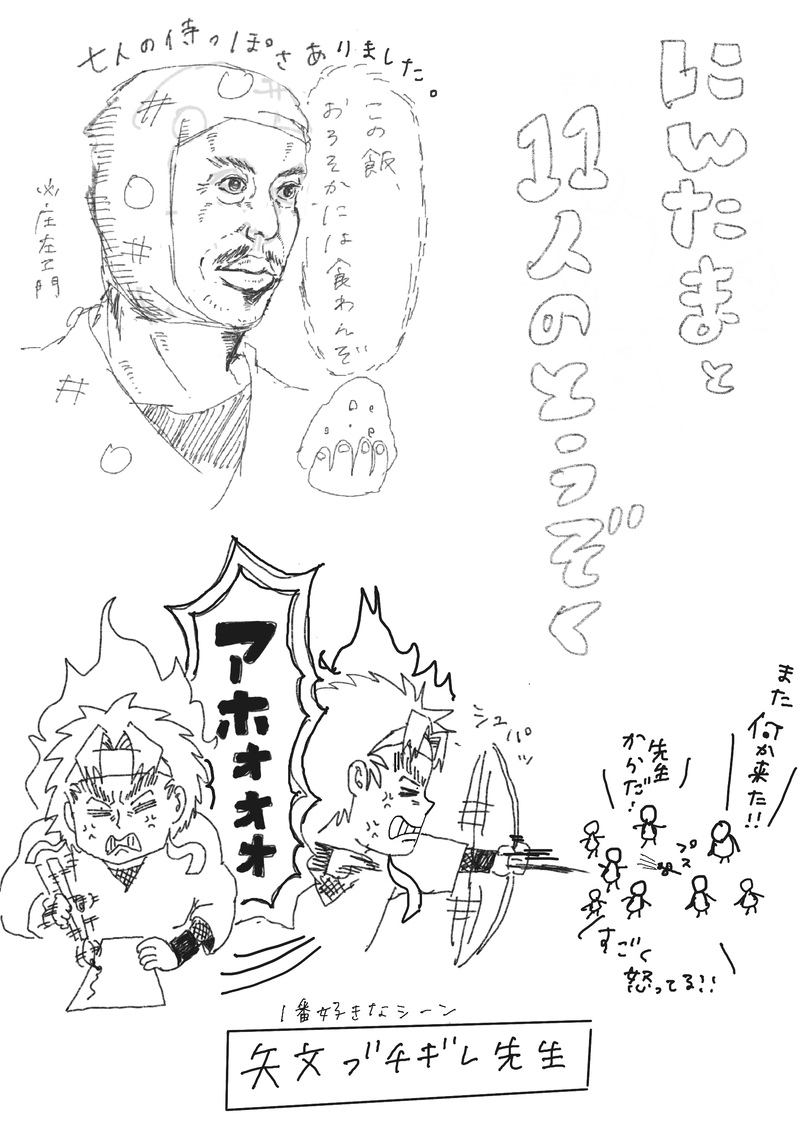 にんたまと
11人のとうぞく
七人の侍っぽさありました。
この飯、
おろそかには食わんぞ
庄左ヱ門
アホォォォォ
シュパッ
また何か来た!!
先生
からだ!
プス
すごく
怒ってる!!
1番好きなシーン
矢文ブチギレ先生